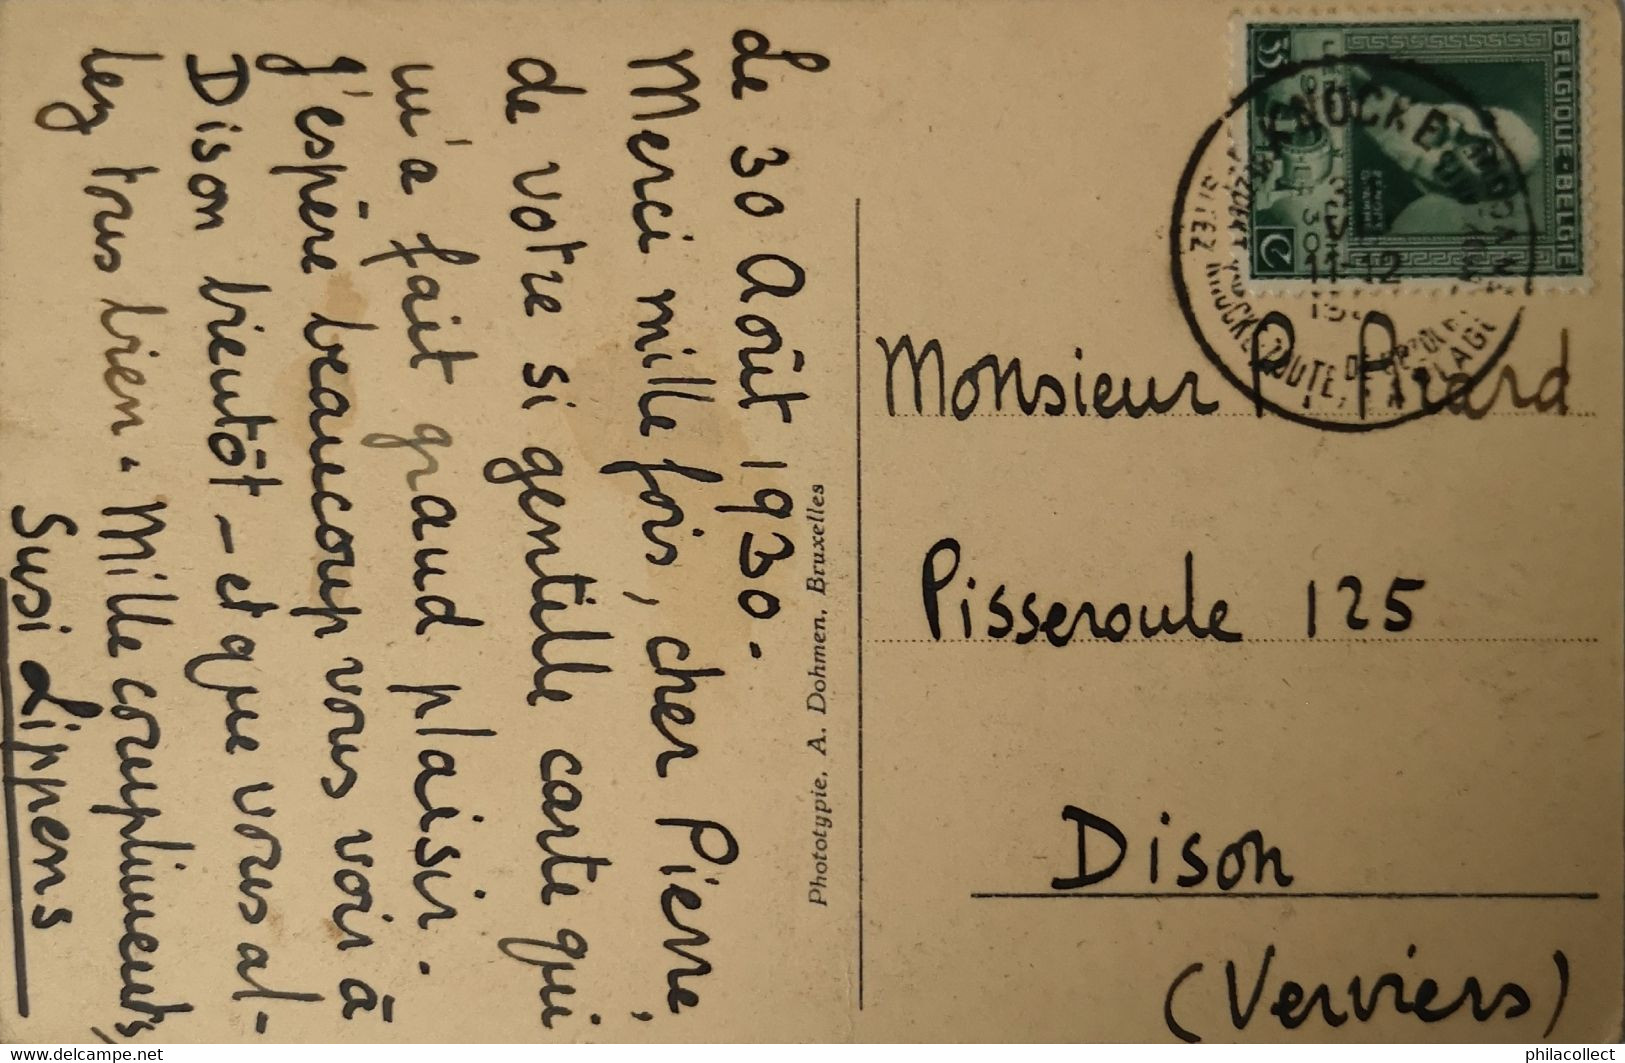 Le 30 Août 1930.
Merci mille fois, cher Pierre,
de votre si gentille carte qui
m'a fait grand plaisir.
J'espère beaucoup vous voir à
Dison bientôt - et que vous al-
lez tous bien. Mille compliments,
Susi Lippens
Phototypie. A. Dohmen, Bruxelles
BELGIQUE-BELGIË
35 C
KNOCKE
30
11-12
ROUTE
PLAGE
Monsieur P. Pirard
Pisseroule 125
Dison
(Verviers)
philacollect